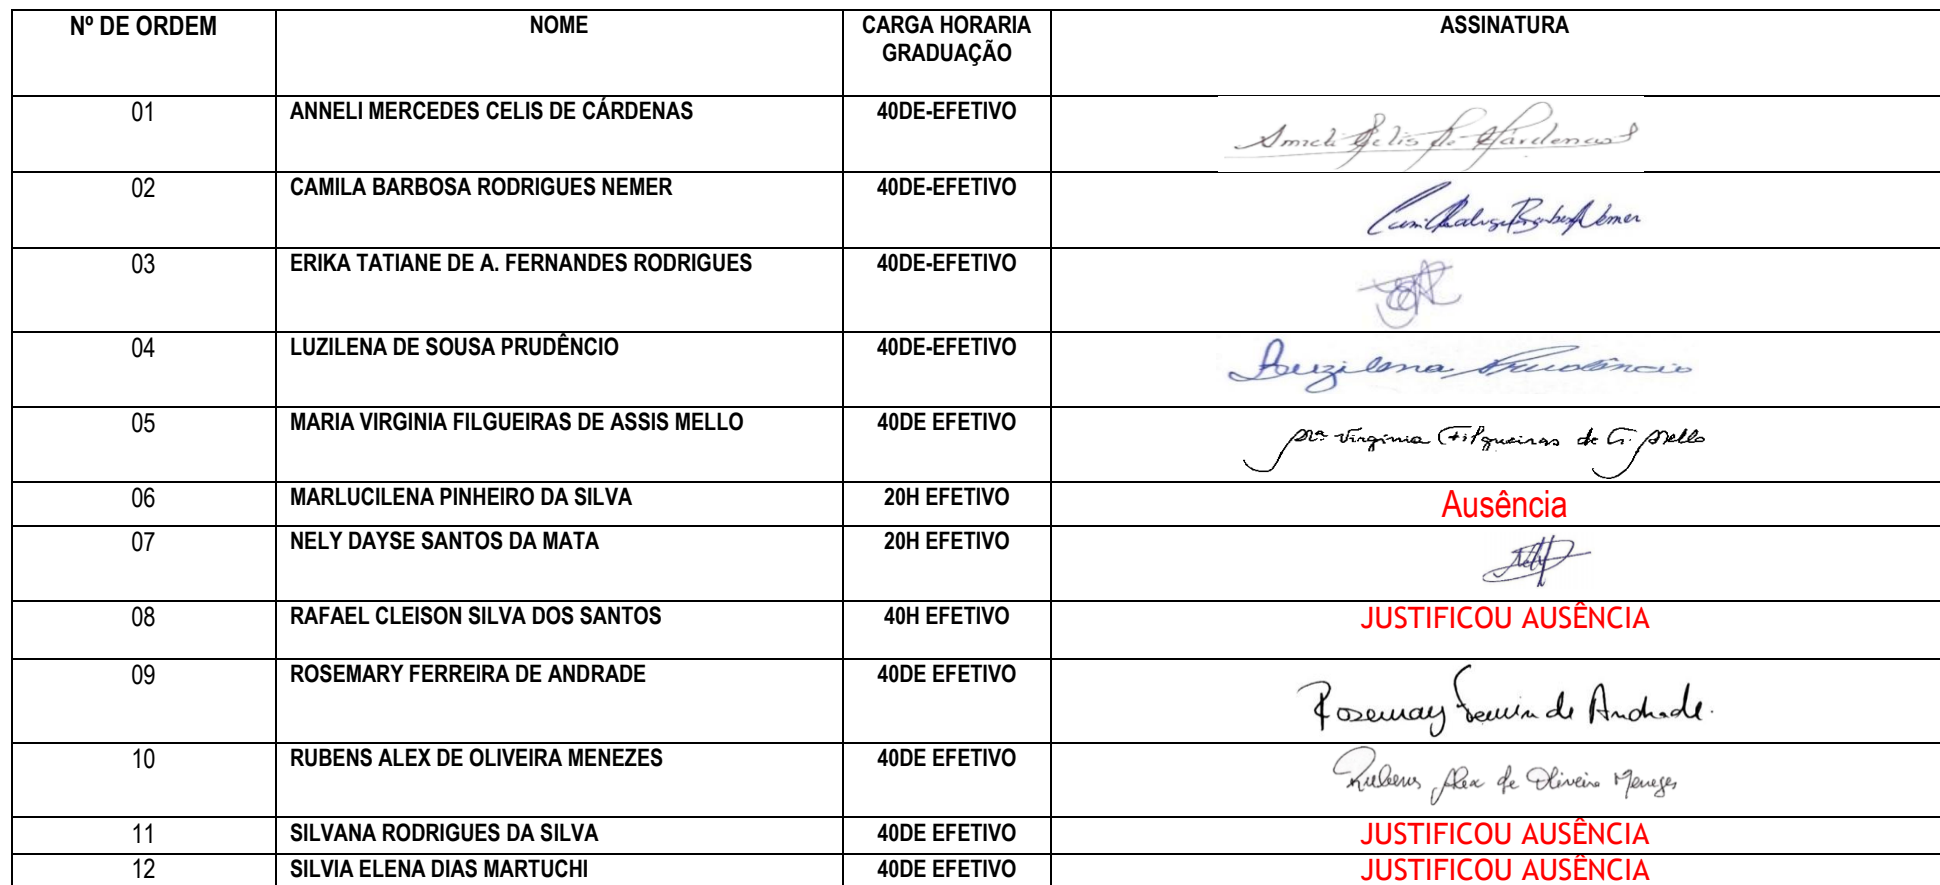 Nº DE ORDEM NOME CARGA HORARIA GRADUAÇÃO ASSINATURA
01 ANNELI MERCEDES CELIS DE CÁRDENAS 40DE-EFETIVO Anneli Celis de Cárdenas
02 CAMILA BARBOSA RODRIGUES NEMER 40DE-EFETIVO
03 ERIKA TATIANE DE A. FERNANDES RODRIGUES 40DE-EFETIVO
04 LUZILENA DE SOUSA PRUDÊNCIO 40DE-EFETIVO Luzilena Prudêncio
05 MARIA VIRGINIA FILGUEIRAS DE ASSIS MELLO 40DE EFETIVO Mª Virginia Filgueiras de A. Mello
06 MARLUCILENA PINHEIRO DA SILVA 20H EFETIVO Ausência
07 NELY DAYSE SANTOS DA MATA 20H EFETIVO
08 RAFAEL CLEISON SILVA DOS SANTOS 40H EFETIVO JUSTIFICOU AUSÊNCIA
09 ROSEMARY FERREIRA DE ANDRADE 40DE EFETIVO Rosemary Ferreira de Andrade.
10 RUBENS ALEX DE OLIVEIRA MENEZES 40DE EFETIVO Rubens Alex de Oliveira Menezes
11 SILVANA RODRIGUES DA SILVA 40DE EFETIVO JUSTIFICOU AUSÊNCIA
12 SILVIA ELENA DIAS MARTUCHI 40DE EFETIVO JUSTIFICOU AUSÊNCIA